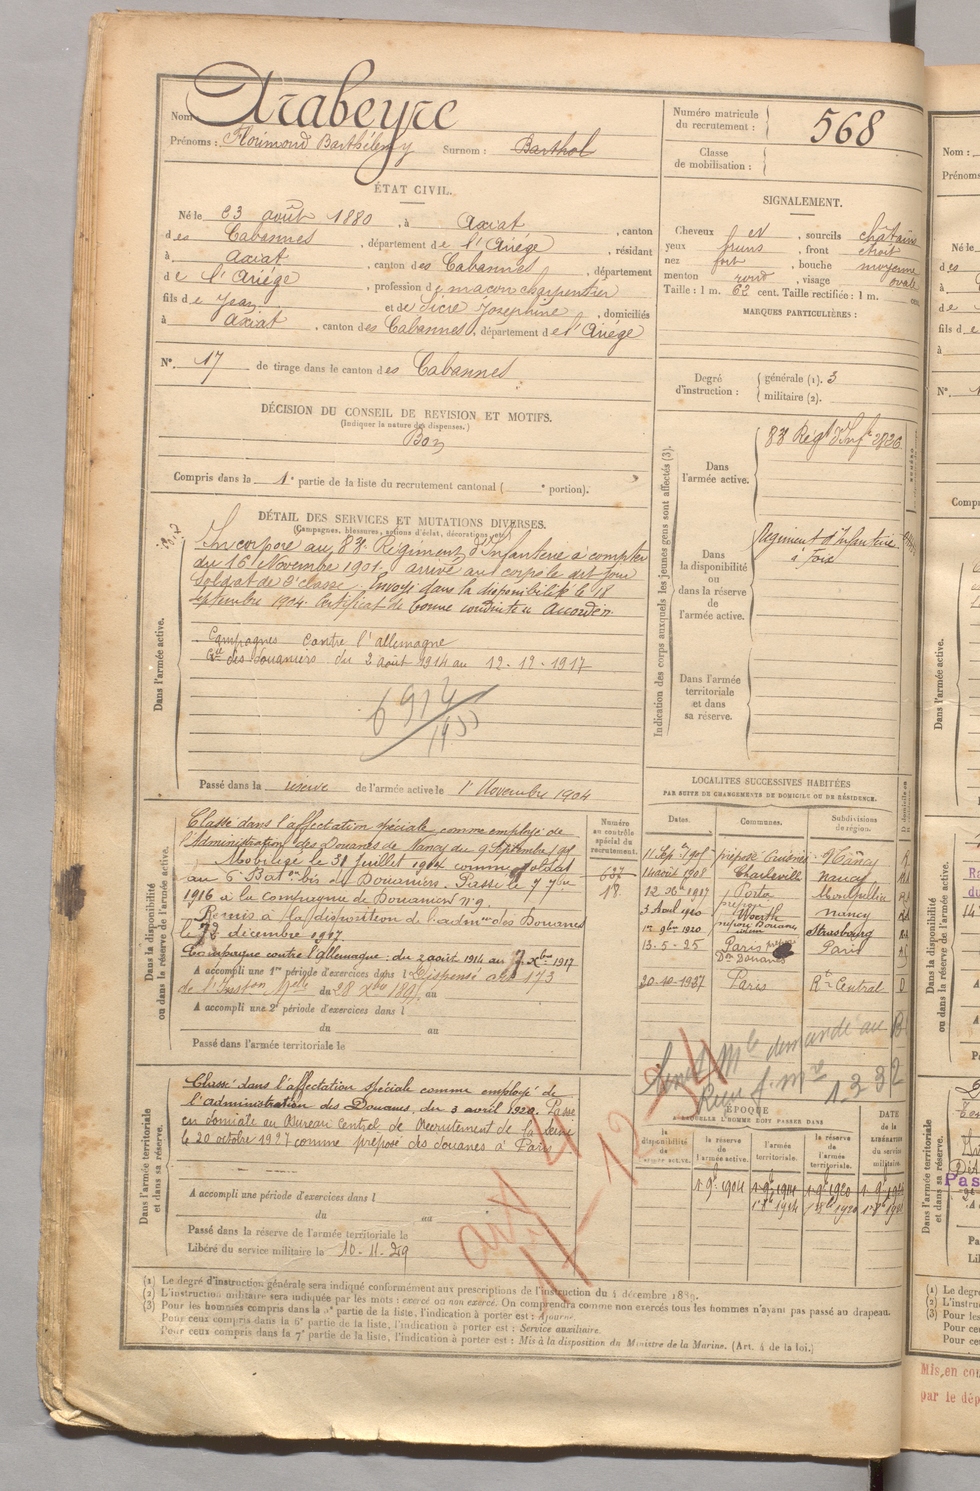 Nom Arabeyre
Prénoms : Florimond Barthélemy Surnom : Barthol
ÉTAT CIVIL.
Né le 23 août 1880, à Axiat, canton
des Cabannes, département de l'Ariége, résidant
à Axiat, canton des Cabannes, département
de l'Ariége, profession de maçon charpentier
fils de Jean et de Sicre Joséphine, domiciliés
à Axiat, canton des Cabannes, département de l'Ariége
N°. 17 de tirage dans le canton des Cabannes
DÉCISION DU CONSEIL DE REVISION ET MOTIFS.
(Indiquer la nature des dispenses.)
Bon
Compris dans la 1e partie de la liste du recrutement cantonal ( e portion).
DÉTAIL DES SERVICES ET MUTATIONS DIVERSES.
(Campagnes, blessures, actions d'éclat, décorations, etc.)
Dans l'armée active.
Incorporé au 83e Régiment d'Infanterie à compter
du 16 Novembre 1901. arrivé au corps le dit jour
Soldat de 2e classe. Envoyé dans la disponibilité le 18
Septembre 1904. Certificat de bonne conduite Accordé
Campagnes contre l'allemagne
des Douaniers du 2 août 1914 au 12-12-1917
Passé dans la réserve de l'armée active le 1er Novembre 1904
Dans la disponibilité
ou dans la réserve de l'armée active.
Classé dans l'affectation spéciale comme employé de
l'Administration des Douanes de Nancy du 9 Septembre
Mobilisé le 31 Juillet 1914 comme soldat
au 6e Baton bis de Douaniers. Passé le 7 7bre
1916 à la compagnie de Douaniers n° 9.
Remis à la disposition de l'admon des Douanes
le 12 décembre 1917
Campagne contre l'allemagne : du 2 août 1914 au 12 Xbre 1917
A accompli une 1re période d'exercices dans l Dispensé art 173
de l'Inston Melle du 28 Xbre 1895 au
A accompli une 2e période d'exercices dans l
du au
Passé dans l'armée territoriale le
Numéro
au contrôle
spécial du
recrutement.
627
18
Dans l'armée territoriale
et dans sa réserve.
Classé dans l'affectation spéciale comme employé de
l'administration des Douanes, du 3 avril 1920. Passé
en domicile au Bureau Central de Recrutement de la Seine
le 20 octobre 1927 comme préposé des douanes à Paris
A accompli une période d'exercices dans l
du au
Passé dans la réserve de l'armée territoriale le
Libéré du service militaire le 10-11-29
Numéro matricule
du recrutement : 568
Classe
de mobilisation :
SIGNALEMENT.
Cheveux et, sourcils châtains
yeux bruns, front étroit
nez fort, bouche moyenne
menton rond, visage ovale
Taille : 1 m. 62 cent. Taille rectifiée : 1 m. cent.
MARQUES PARTICULIÈRES :
Degré
d'instruction :
générale (1). 3
militaire (2).
Indication des corps auxquels les jeunes gens sont affectés (3).
Dans
l'armée active.
83 Régt d'Infie 2826
Dans
la disponibilité
ou
dans la réserve
de
l'armée active.
Régiment d'Infanterie
à Foix
Dans l'armée
territoriale
et dans
sa réserve.
LOCALITES SUCCESSIVES HABITÉES
PAR SUITE DE CHANGEMENTS DE DOMICILE OU DE RÉSIDENCE.
Dates. Communes. Subdivisions
de région.
préposé Nancy R
14 août 1908 Charleville Nancy
12 Xbre 1917 Porta Montpellier
3 Avril 1920 Woerth Nancy
1er 9bre 1920 Strasbourg
13-5-25 Paris Paris
Don Douanes
20-10-1937 Paris Rt Central D
ÉPOQUE
A LAQUELLE L'HOMME DOIT PASSER DANS
la
disponibilité
de
l'armée active.
la réserve
de
l'armée active.
l'armée
territoriale.
la réserve
de
l'armée
territoriale.
DATE
de la
LIBÉRATION
du service
militaire.
1er 9bre 1904
art 4
17-12-34
(1) Le degré d'instruction générale sera indiqué conformément aux prescriptions de l'instruction du 4 décembre 1889.
(2) L'instruction militaire sera indiquée par les mots : exercé ou non exercé. On comprendra comme non exercés tous les hommes n'ayant pas passé au drapeau.
(3) Pour les hommes compris dans la partie de la liste, l'indication à porter est : Ajourné.
Pour ceux compris dans la 6e partie de la liste, l'indication à porter est : Service auxiliaire.
Pour ceux compris dans la 7e partie de la liste, l'indication à porter est : Mis à la disposition du Ministre de la Marine. (Art. 4 de la loi.)